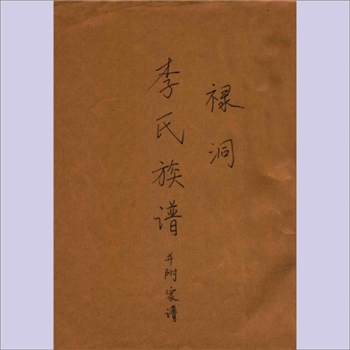 禄洞
李氏族谱
并附家谱